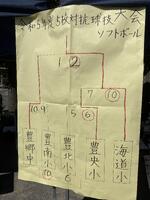 令和5年度5校対抗球技大会
ソフトボール
1 2
7 ⑩
10.9 5 ⑥
豊郷中
豊南小10
豊北小6
豊央小
海道小